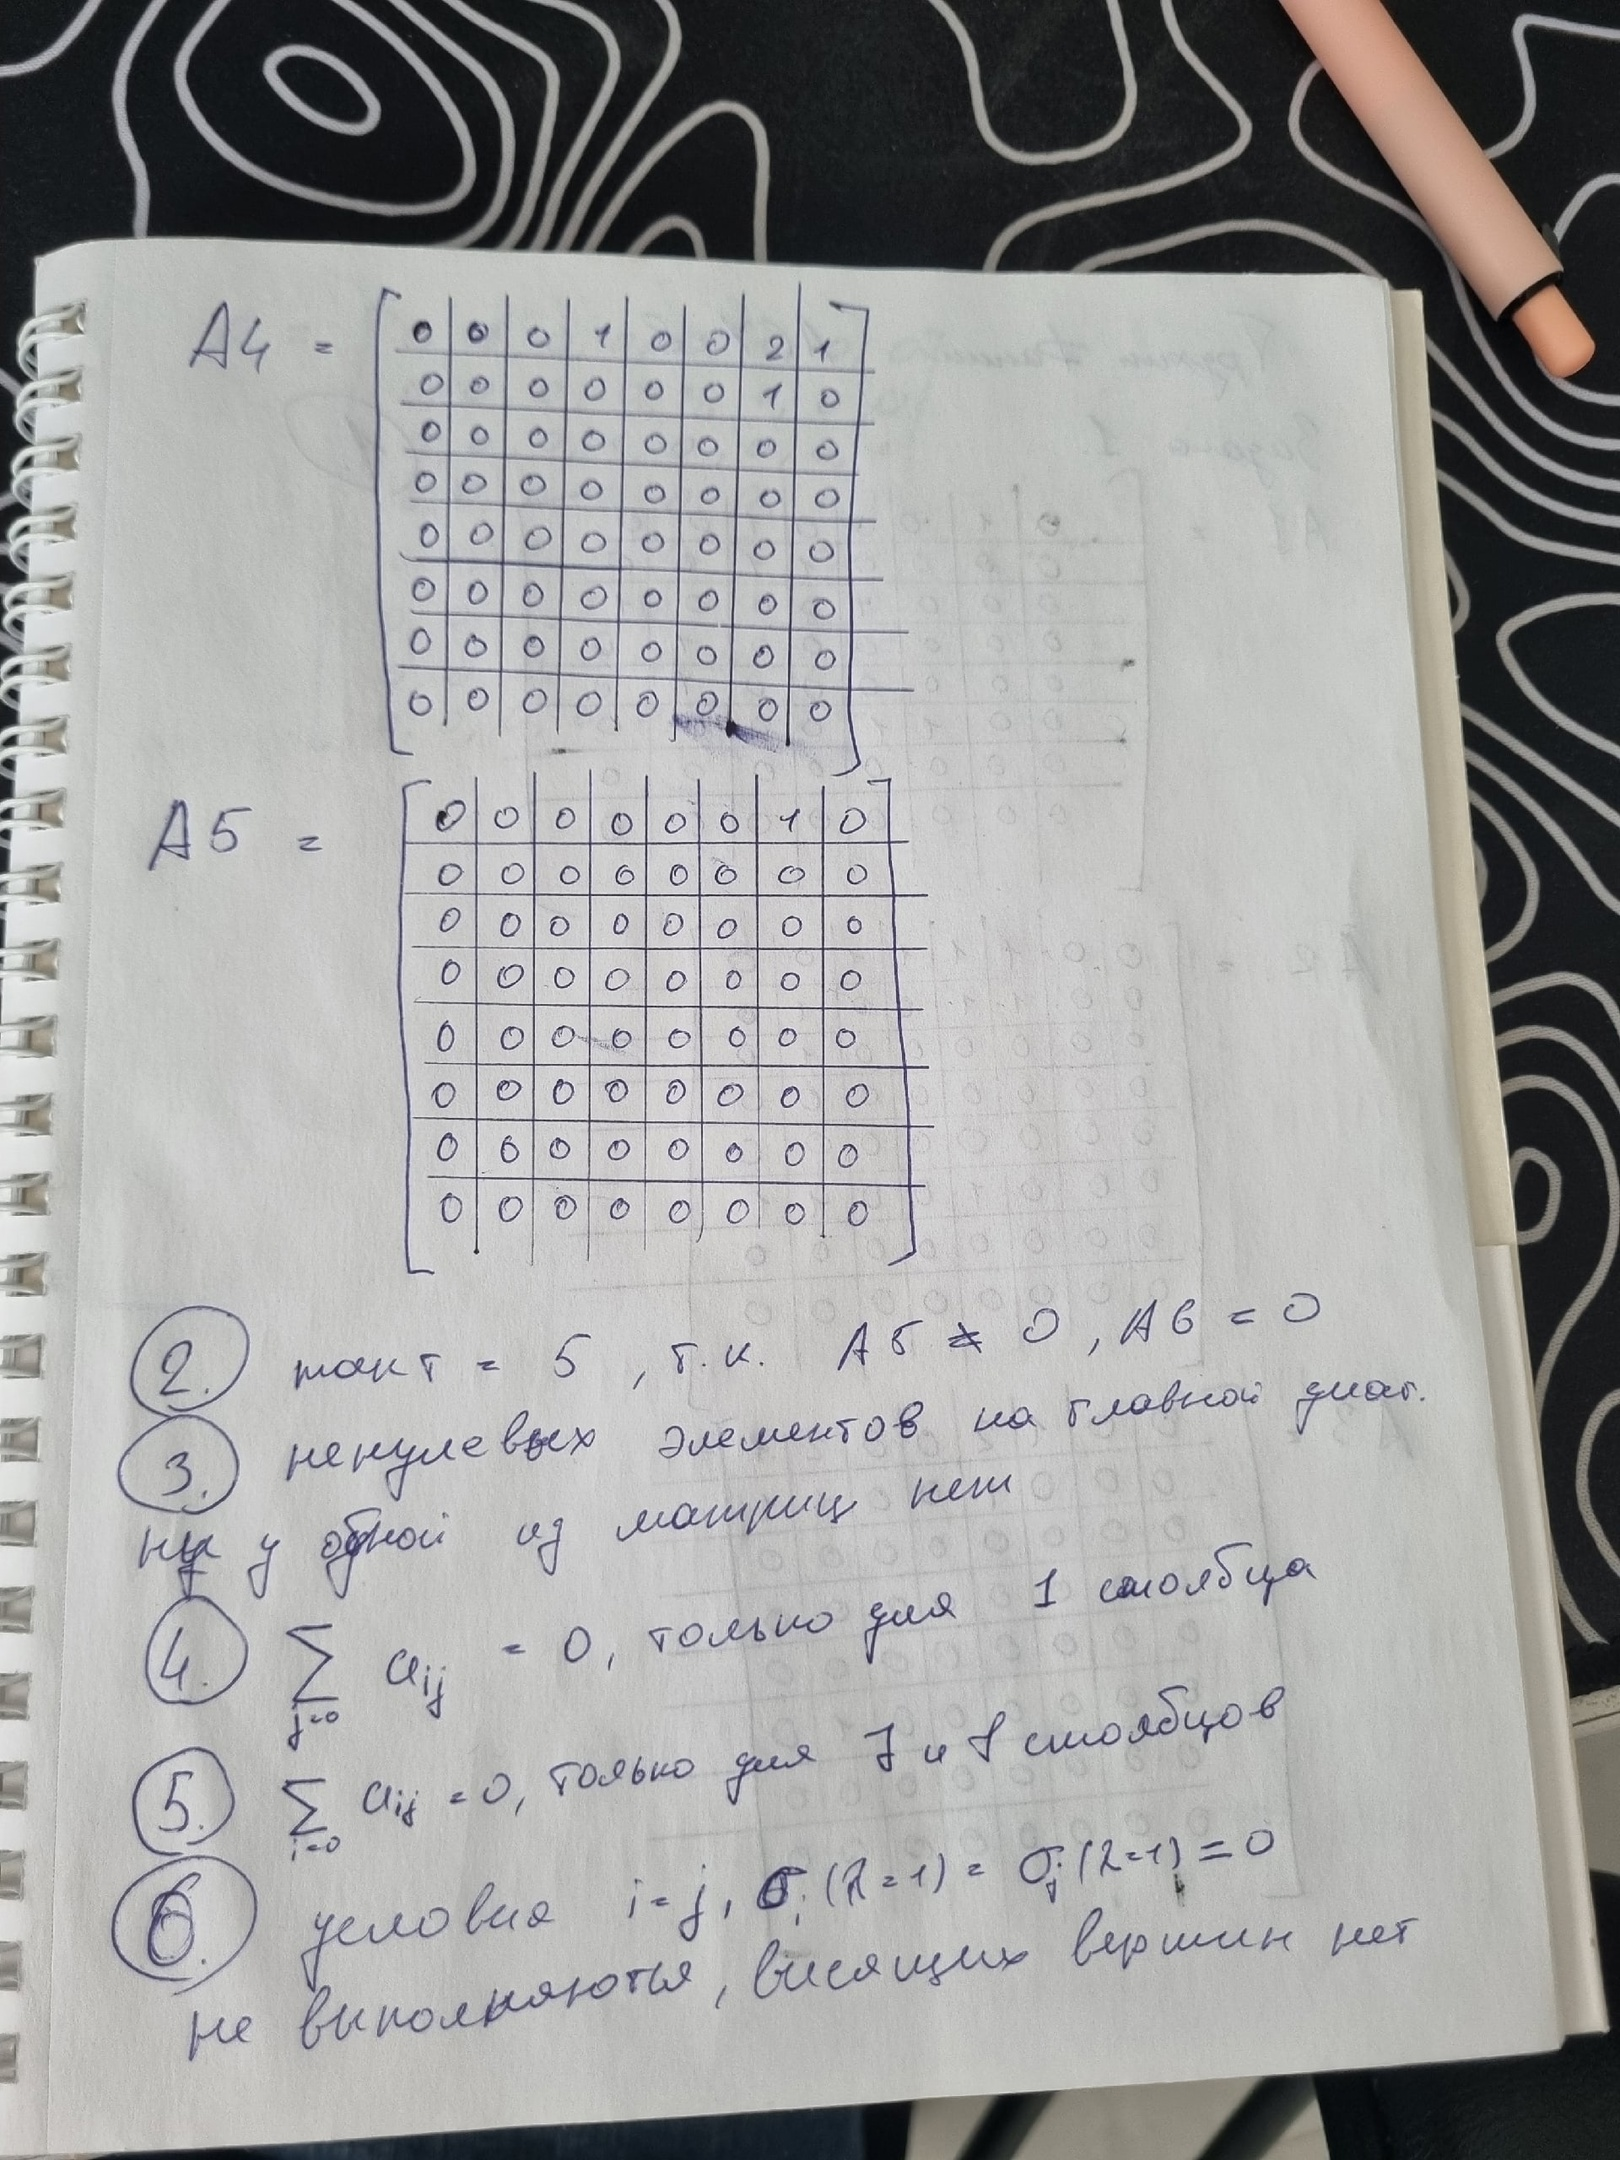 A4 =
0 0 0 1 0 0 2 1
0 0 0 0 0 0 1 0
0 0 0 0 0 0 0 0
0 0 0 0 0 0 0 0
0 0 0 0 0 0 0 0
0 0 0 0 0 0 0 0
0 0 0 0 0 0 0 0
0 0 0 0 0 0 0 0
A5 =
0 0 0 0 0 0 1 0
0 0 0 0 0 0 0 0
0 0 0 0 0 0 0 0
0 0 0 0 0 0 0 0
0 0 0 0 0 0 0 0
0 0 0 0 0 0 0 0
0 0 0 0 0 0 0 0
0 0 0 0 0 0 0 0
2. такт = 5, т.к. A5 ≠ 0, A6 = 0
3. ненулевых элементов на главной диаг.
ни у одной из матриц нет
4. ∑ j=0 aij = 0, только для 1 столбца
5. ∑ i=0 aij = 0, только для 7 и 8 столбцов
6. условия i=j, σi(λ=1) = σj(λ=1) = 0
не выполняются, висящих вершин нет